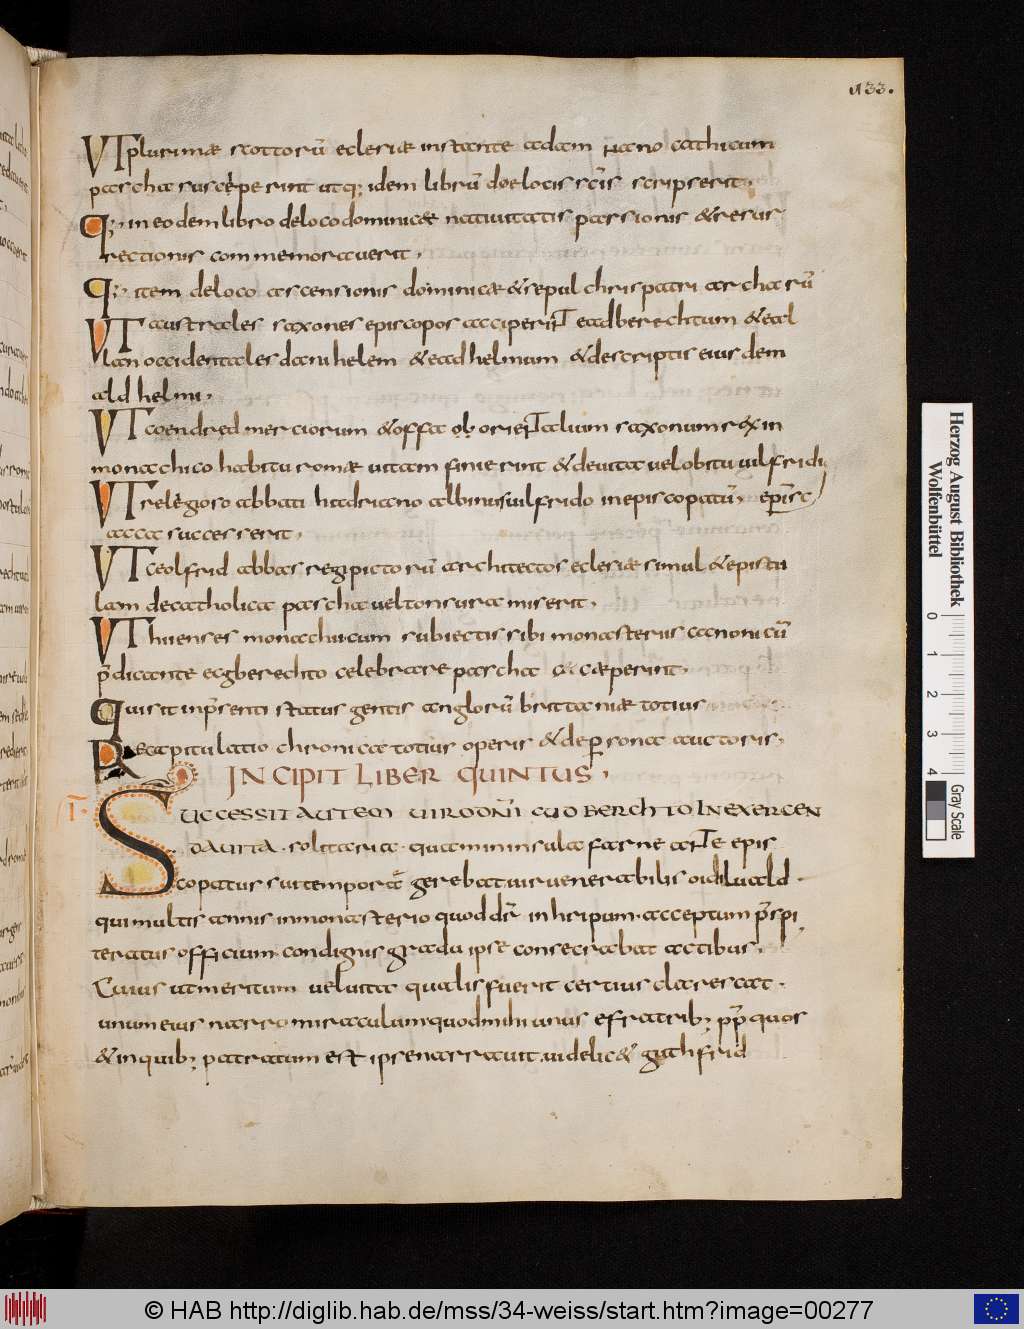 133.
UT plurimae scottorū eclesiae instante adamnano cathicum
pascha susceperint utq; idem librū de locis scīs scripserit.
Q; in eodem libro de loco dominicae nativitatis passionis & resur
rectionis commemoraverit.
Q; item de loco ascensionis dominicae & sepulchris patriarcharū
UT australes saxones episcopos acceperint eadberechtum & eal
lan occidentales danihelem & eadhelmum & descriptis eiusdem
aldhelmi.
UT coendred merciorum & offa ob orientalium saxonum rex in
monachico habitu romae vitam finierint & de vita vel obitu vilfridi
UT religioso abbati hadriano albinus vilfrido in episcopatū, episc
acca successerit.
UT ceolfrid abbas regi pictorū architectos eclesiae simul & epistu
lam de catholica pascha vel tonsura miserit.
UT hiienses monachi cum subiectis sibi monasteriis canonicū
p̄dicante ecgberechto celebrare pascha caeperint.
Qui sit in p̄senti status gentis anglorū brittaniae totius
Recapitulatio chronica totius operis & de persona auctoris.
INCIPIT LIBER QUINTUS.
I.
SUCCESSIT AUTEM VIRO DNĪ CUDBERCHTO IN EXERCEN
DA VITA solitaria quam in insula farne ante epis
copatus sui tempora gerebat vir venerabilis oidiluuald.
qui multis annis in monasterio quod dr̄ inhripum. acceptum p̄sbi
teratus officium condignis gradu ipse consecrabat actibus.
Cuius ut meritum vel vita qualis fuerit certius clarescat.
unum eius narro miraculum quod mihi unus e fratrib; pp̄ quos
& in quib; patratum est ipse narravit. videlic& guthfrid
Herzog August Bibliothek
Wolfenbüttel
0 1 2 3 4
Gray Scale
© HAB http://diglib.hab.de/mss/34-weiss/start.htm?image=00277